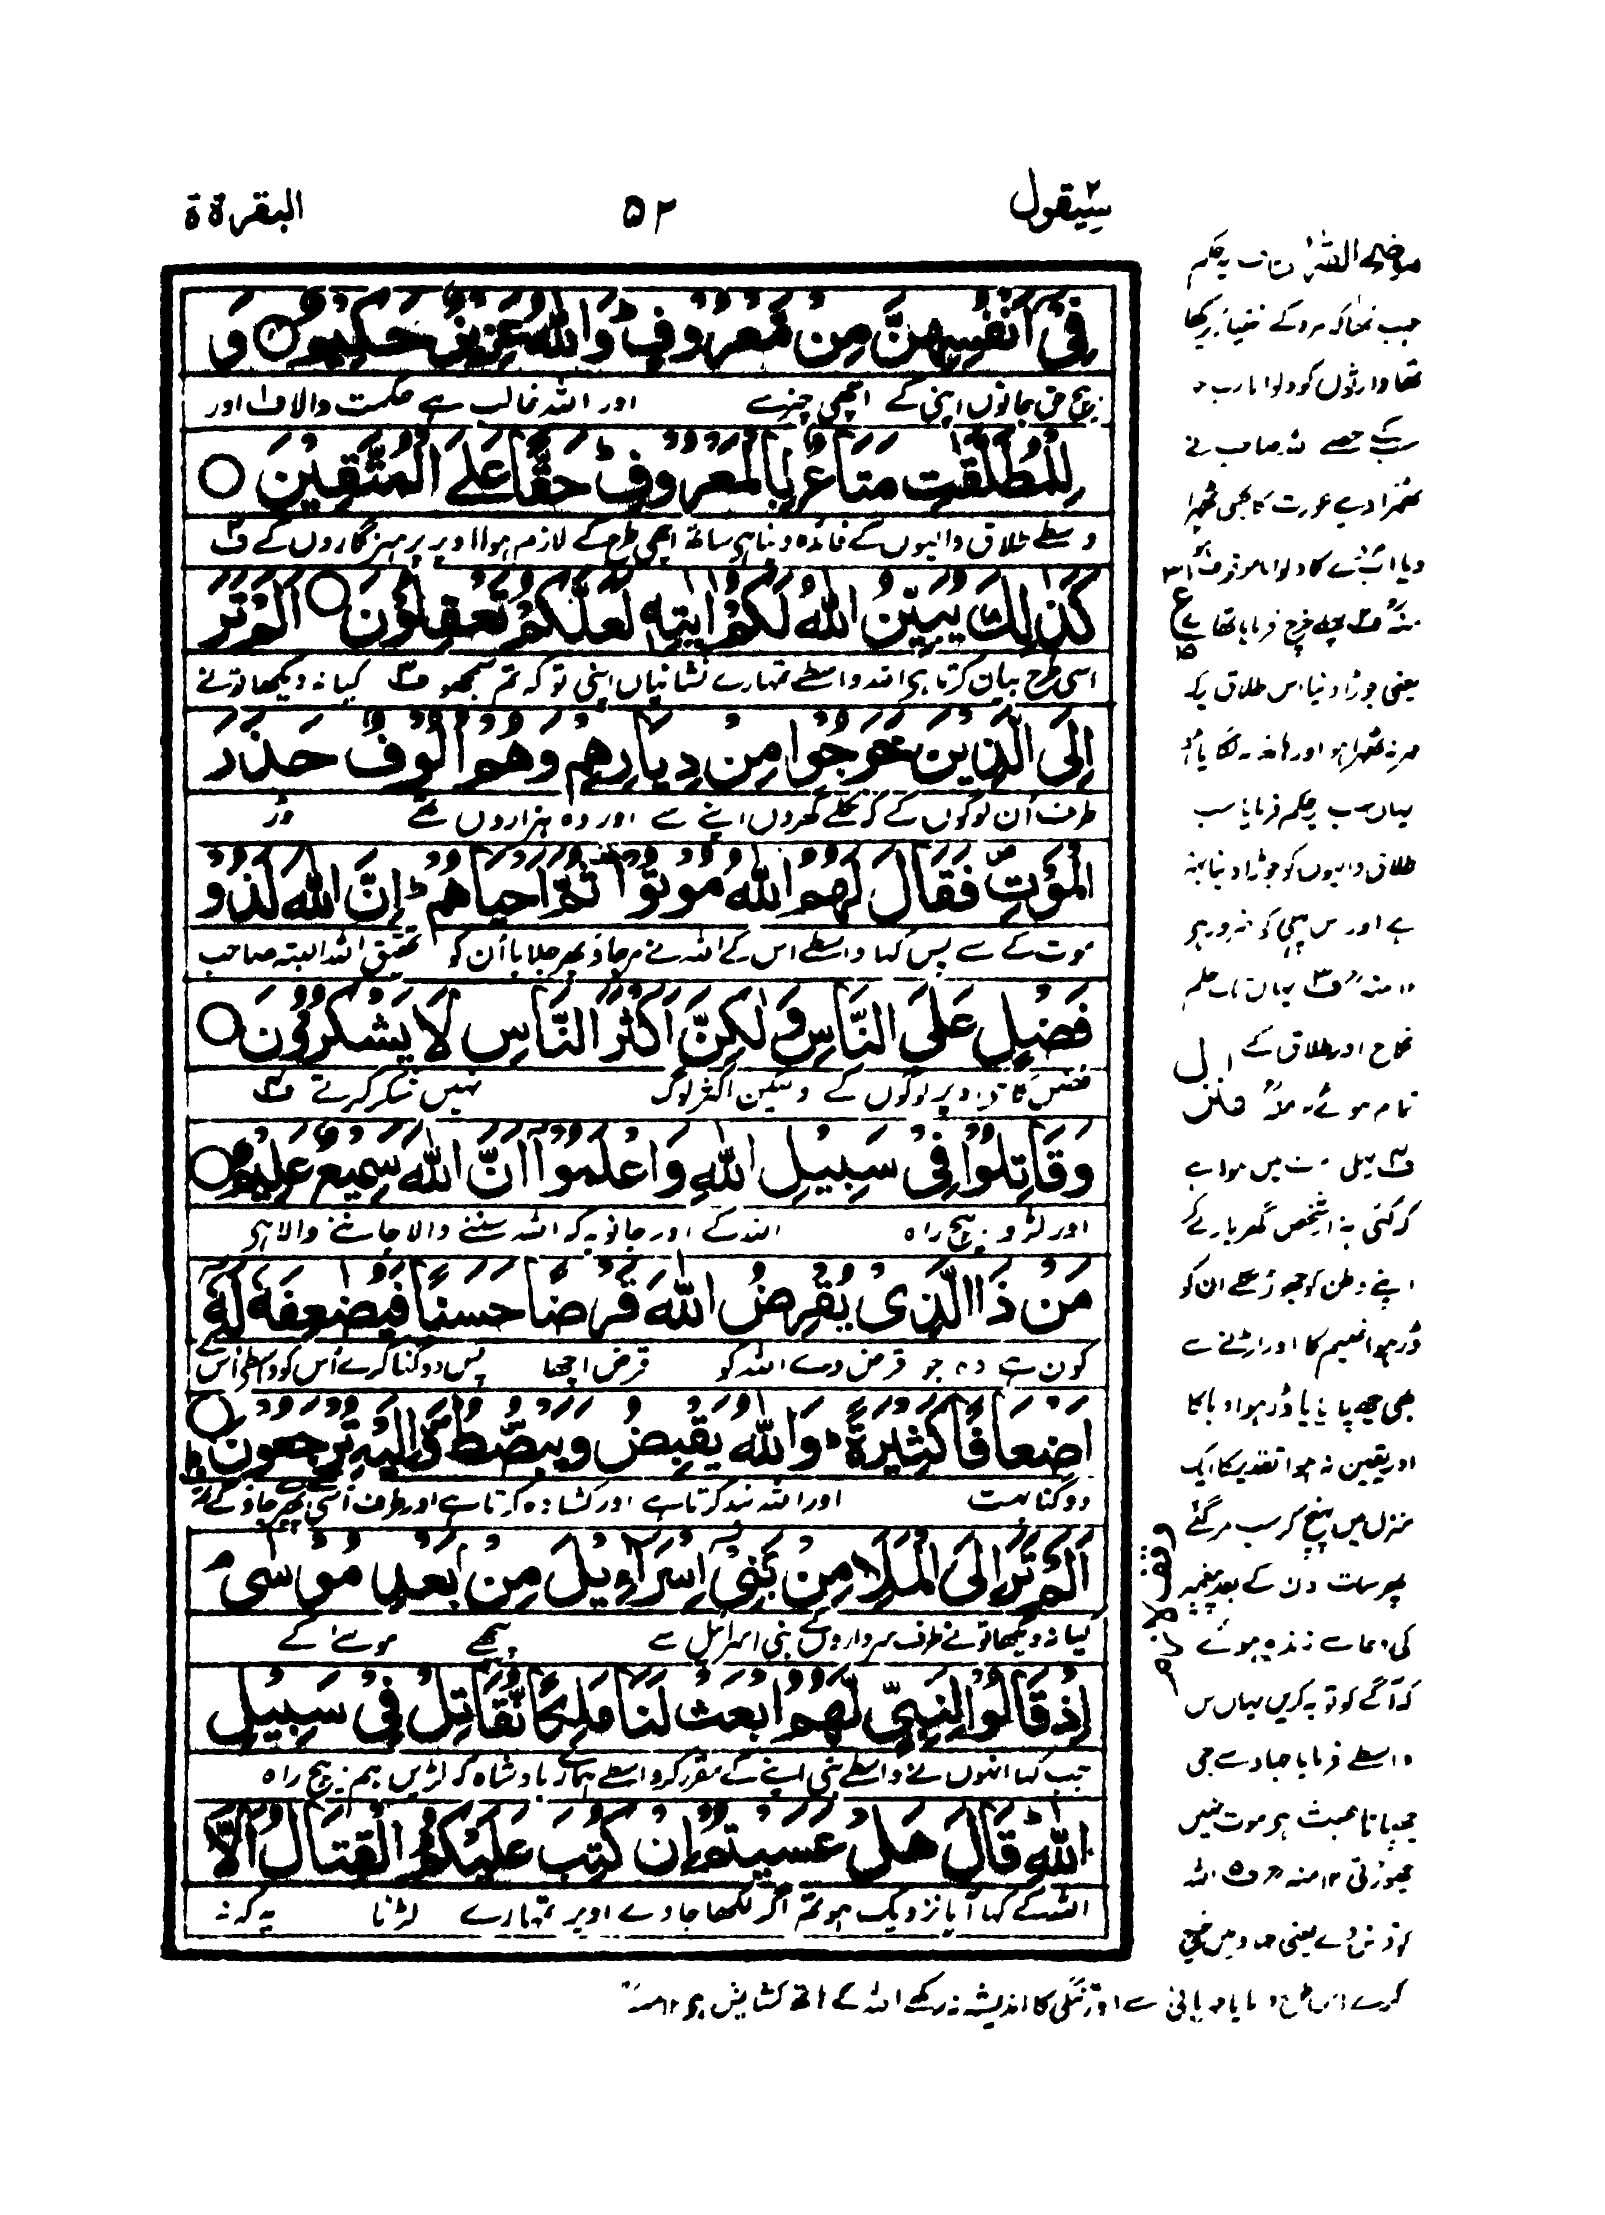 سيقول ٢
٥٢
البقرة
فِيْٓ اَنْفُسِهِنَّ مِنْ مَّعْرُوْفٍ ؕ وَاللّٰهُ عَزِيْزٌ حَكِيْمٌ ○ وَ
بیچ حق جانوں اپنی کے اچھی چیز سے اور اللہ غالب ہے حکمت والا ف اور
لِلْمُطَلَّقٰتِ مَتَاعٌۢ بِالْمَعْرُوْفِ ؕ حَقًّا عَلَى الْمُتَّقِيْنَ ○
واسطے طلاق والیوں کے فائدہ دینا ہی ساتھ اچھی طرح کے لازم ہوا اوپر پرہیزگاروں کے ف
كَذٰلِكَ يُبَيِّنُ اللّٰهُ لَكُمْ اٰيٰتِهٖ لَعَلَّكُمْ تَعْقِلُوْنَ ○ اَلَمْ تَرَ
اسی طرح بیان کرتا ہی اللہ واسطے تمہارے نشانیاں اپنی تو کہ تم سمجھو ف کیا نہ دیکھا تو نے
اِلَى الَّذِيْنَ خَرَجُوْا مِنْ دِيَارِهِمْ وَهُمْ اُلُوْفٌ حَذَرَ
طرف اُن لوگوں کے کہ نکلے گھروں اپنے سے اور وہ ہزاروں تھے ڈر
الْمَوْتِ ۪ فَقَالَ لَهُمُ اللّٰهُ مُوْتُوْا ۫ ثُمَّ اَحْيَاهُمْ ؕ اِنَّ اللّٰهَ لَذُوْ
موت کے سے پس کہا واسطے اس کے اللہ نے مرجاؤ پھر جلایا اُن کو تحقیق اللہ البتہ صاحب
فَضْلٍ عَلَى النَّاسِ وَلٰكِنَّ اَكْثَرَ النَّاسِ لَا يَشْكُرُوْنَ ○
فضل کا ہے اوپر لوگوں کے ولیکن اکثر لوگ نہیں شکر کرتے ف
وَقَاتِلُوْا فِيْ سَبِيْلِ اللّٰهِ وَاعْلَمُوْٓا اَنَّ اللّٰهَ سَمِيْعٌ عَلِيْمٌ ○
اور لڑو بیچ راہ اللہ کے اور جانو یہ کہ اللہ سننے والا جاننے والا ہی
مَنْ ذَا الَّذِيْ يُقْرِضُ اللّٰهَ قَرْضًا حَسَنًا فَيُضٰعِفَهٗ لَهٗٓ
کون ہے وہ جو قرض دے اللہ کو قرض اچھا پس دوگنا کرے اُس کو واسطے اُس کے
اَضْعَافًا كَثِيْرَةً ؕ وَاللّٰهُ يَقْبِضُ وَيَبْصُۜطُ ۪ وَاِلَيْهِ تُرْجَعُوْنَ ○
دوگنا بہت اور اللہ بند کرتا ہے اور کشادہ کرتا ہے اور طرف اُسی کے پھیرے جاؤ گے
اَلَمْ تَرَ اِلَى الْمَلَاِ مِنْۢ بَنِيْٓ اِسْرَآءِيْلَ مِنْۢ بَعْدِ مُوْسٰى ۘ
کیا نہ دیکھا تو نے طرف سرداروں کے بنی اسرائیل سے پیچھے موسےٰ کے
اِذْ قَالُوْا لِنَبِيٍّ لَّهُمُ ابْعَثْ لَنَا مَلِكًا نُّقَاتِلْ فِيْ سَبِيْلِ
جب کہا انہوں نے واسطے نبی اپنے کے مقرر کر واسطے ہمارے بادشاہ کہ لڑیں ہم بیچ راہ
اللّٰهِ ؕ قَالَ هَلْ عَسَيْتُمْ اِنْ كُتِبَ عَلَيْكُمُ الْقِتَالُ اَلَّا
اللہ کے کہا آیا نزدیک ہو تم اگر لکھا جاوے اوپر تمہارے لڑنا یہ کہ نہ
موضح القرآن ف یہ حکم
جب تھا کہ مرد کے اختیار رکھا
تھا وارثوں کو دلوانا اب
سب کے حصے اللہ صاحب نے
ٹھہرا دیے عورت کا بھی ٹھہرا
دیا اب آگے کا دلوانا موقوف ہوا ١٢
منہ ف پہلے خرچ فرمایا تھا
یعنی جوڑا دینا اس طلاق پر کہ
مہر نہ ٹھہرا ہو اور ہاتھ نہ لگایا ہو
یہاں سب پر حکم فرمایا سب
طلاق والیوں کو جوڑا دینا بہتر
ہے اور اس پہلی کو ضرور ہی
١٢ منہ ف یہاں تک حکم
نکاح اور طلاق کے
تمام ہوئے ١٢ منہ منزل
ف پہلی امت میں ہوا ہے
کہ کئی ہزار شخص گھر بار لے کے
اپنے وطن کو چھوڑ نکلے ان کو
ڈر ہوا غنیم کا اور لڑنے سے
جی چھپایا یا ڈر ہوا وبا کا
اور یقین نہ ہوا تقدیر کا ایک
منزل میں پہنچ کر سب مر گئے
پھر سات دن کے بعد پیغمبر
کی دعا سے زندہ ہوئے
کہ آگے کو توبہ کریں یہاں اس
واسطے فرمایا جہاد سے جی
چھپانا عبث ہی موت نہیں
چھوڑتی ١٢ منہ ف اللہ
کو قرض دے یعنی جہاد میں خرچ
کرے اس طرح فرمایا مہربانی سے اور تنگی کا اندیشہ نہ رکھے اللہ کے ہاتھ کشایش ہی ١٢ منہ